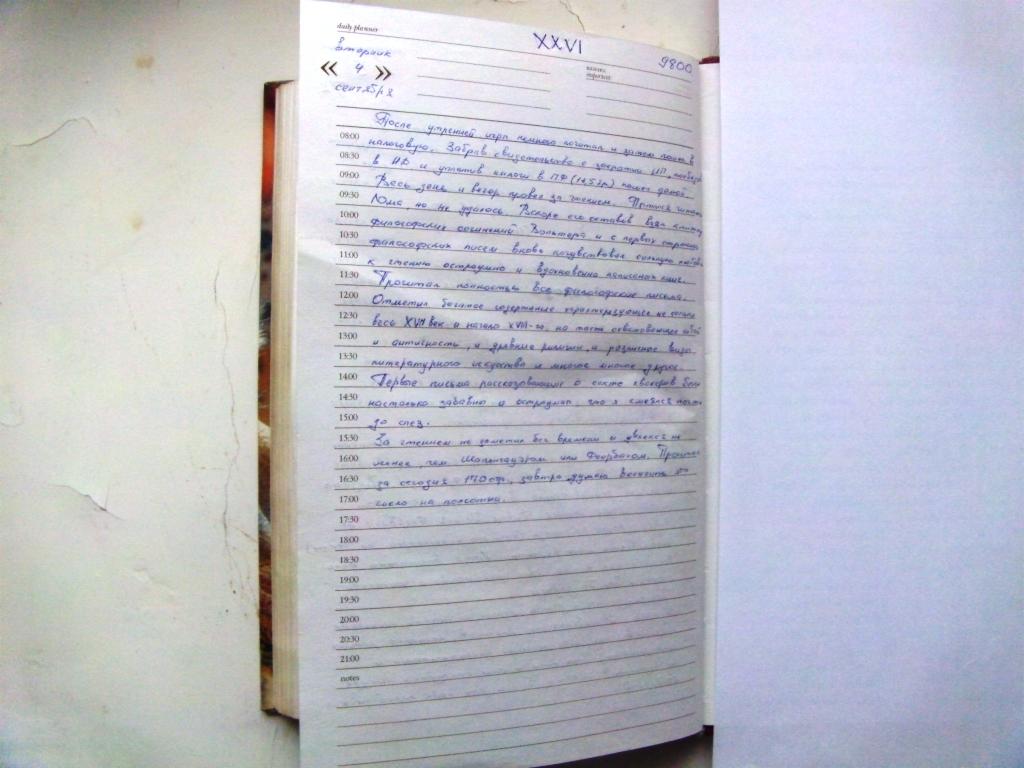 daily planner
XXVI
9800
вторник
« 4 »
важно
important
сентября
После утренней игры немного почитал и затем поехал в
08:00
налоговую. Забрав свидетельство о закрытии ИП,
08:30
в и уплатив налоги в ПФ поехал домой.
09:00
Весь день и вечер провел за чтением. Пытался читать
09:30
но не удалось. Вскоре его оставив взял книгу
10:00
философских сочинений Вольтера и с первых страниц
10:30
философских писем вновь почувствовал сильную любовь
11:00
к чтению остроумно и вдохновенно написанных книг.
11:30
Прочитал полностью все философские письма.
12:00
Отметил богатое содержание характеризующее не только
12:30
весь XVII век и начало XVIII-го, но также охватывающее собой
13:00
и античность, и древние религии, и различные виды
13:30
литературного искусства и многое многое другое.
14:00
Первые письма рассказывающие о секте квакеров были
14:30
настолько забавны и остроумны, что я смеялся почти
15:00
до слез.
15:30
За чтением не заметил бег времени и увлекся не
16:00
менее чем Шопенгауэром или Фейербахом. Прочитал
16:30
за сегодня 170 стр., завтра думаю увеличить это
17:00
число на полсотни.
17:30
18:00
18:30
19:00
19:30
20:00
20:30
21:00
notes